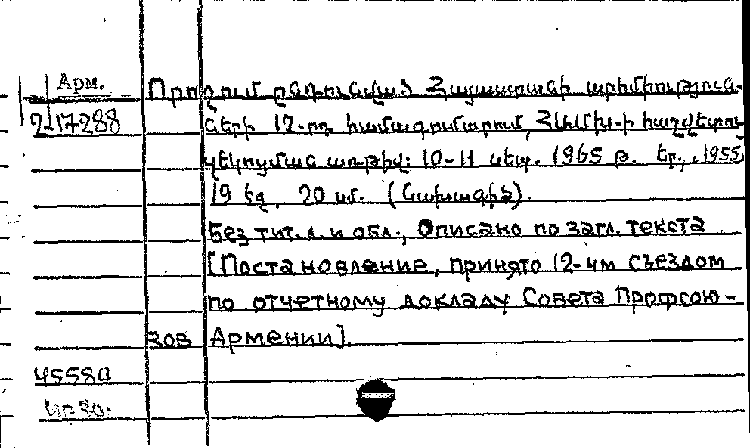 Арм.
Որոշում ընդունված Հայաստանի արհմիություն-
2-17288
ների 12-րդ համագումարում, ՀԱՄԽ-ի հաշվետու
զեկուցման առթիվ: 10-11 սեպ. 1965 թ. Եր., 1955
19 էջ, 20 սմ. (Նախագիծ).
Без тит. л. и обл., Описано по загл. текста
[Постановление, принято 12-ым съездом
по отчетному докладу Совета Профсою-
зов Армении].
45580